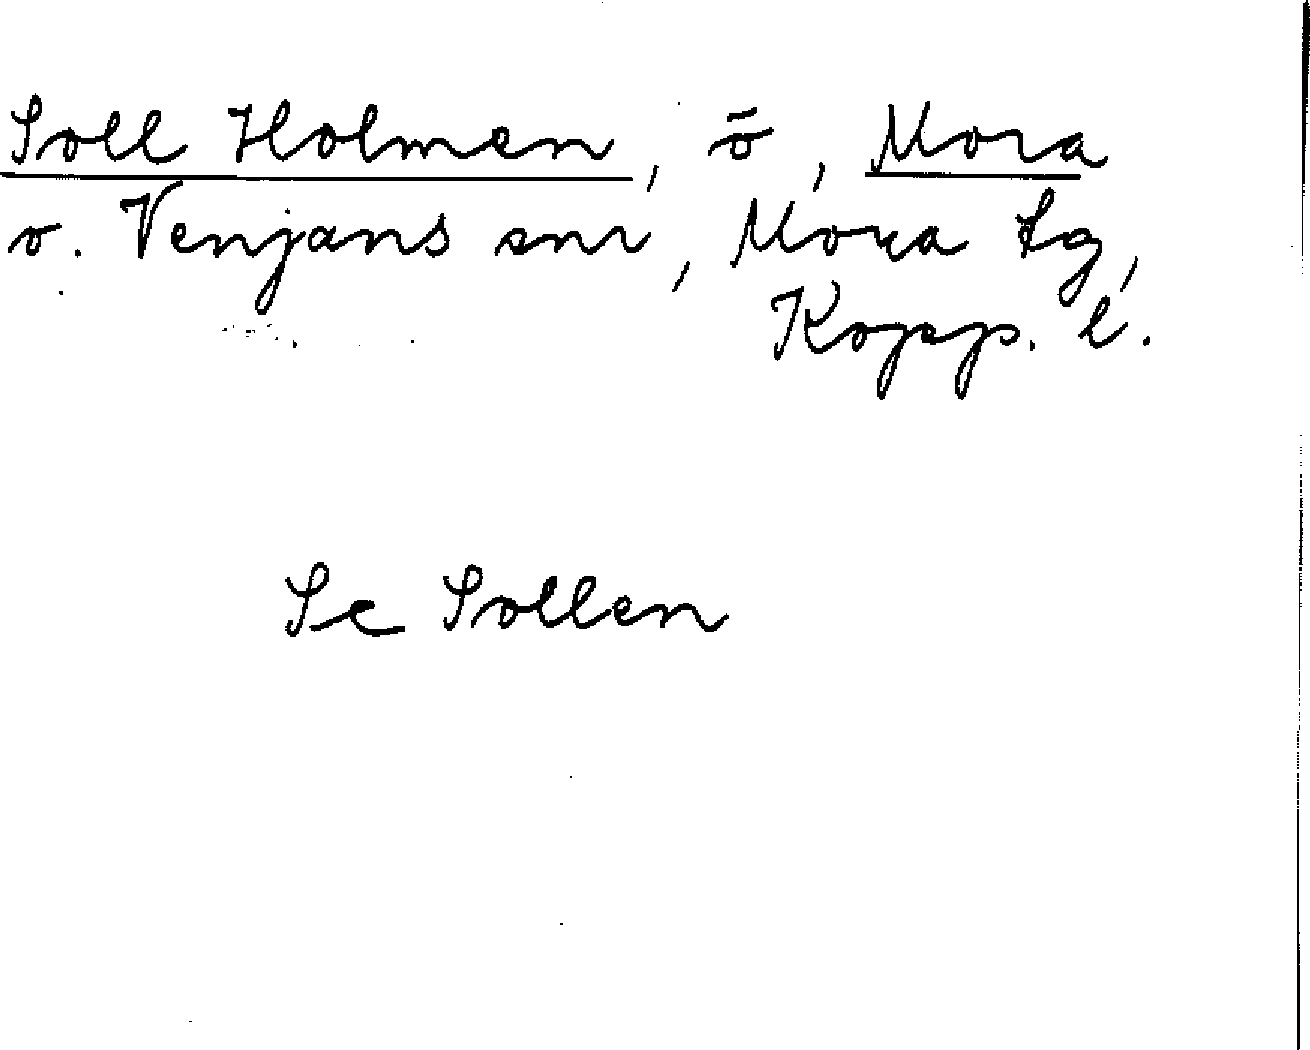 Soll Holmen, ö, Mora
o. Venjans snr, Mora tg,
Kopp. l.
Se Sollen